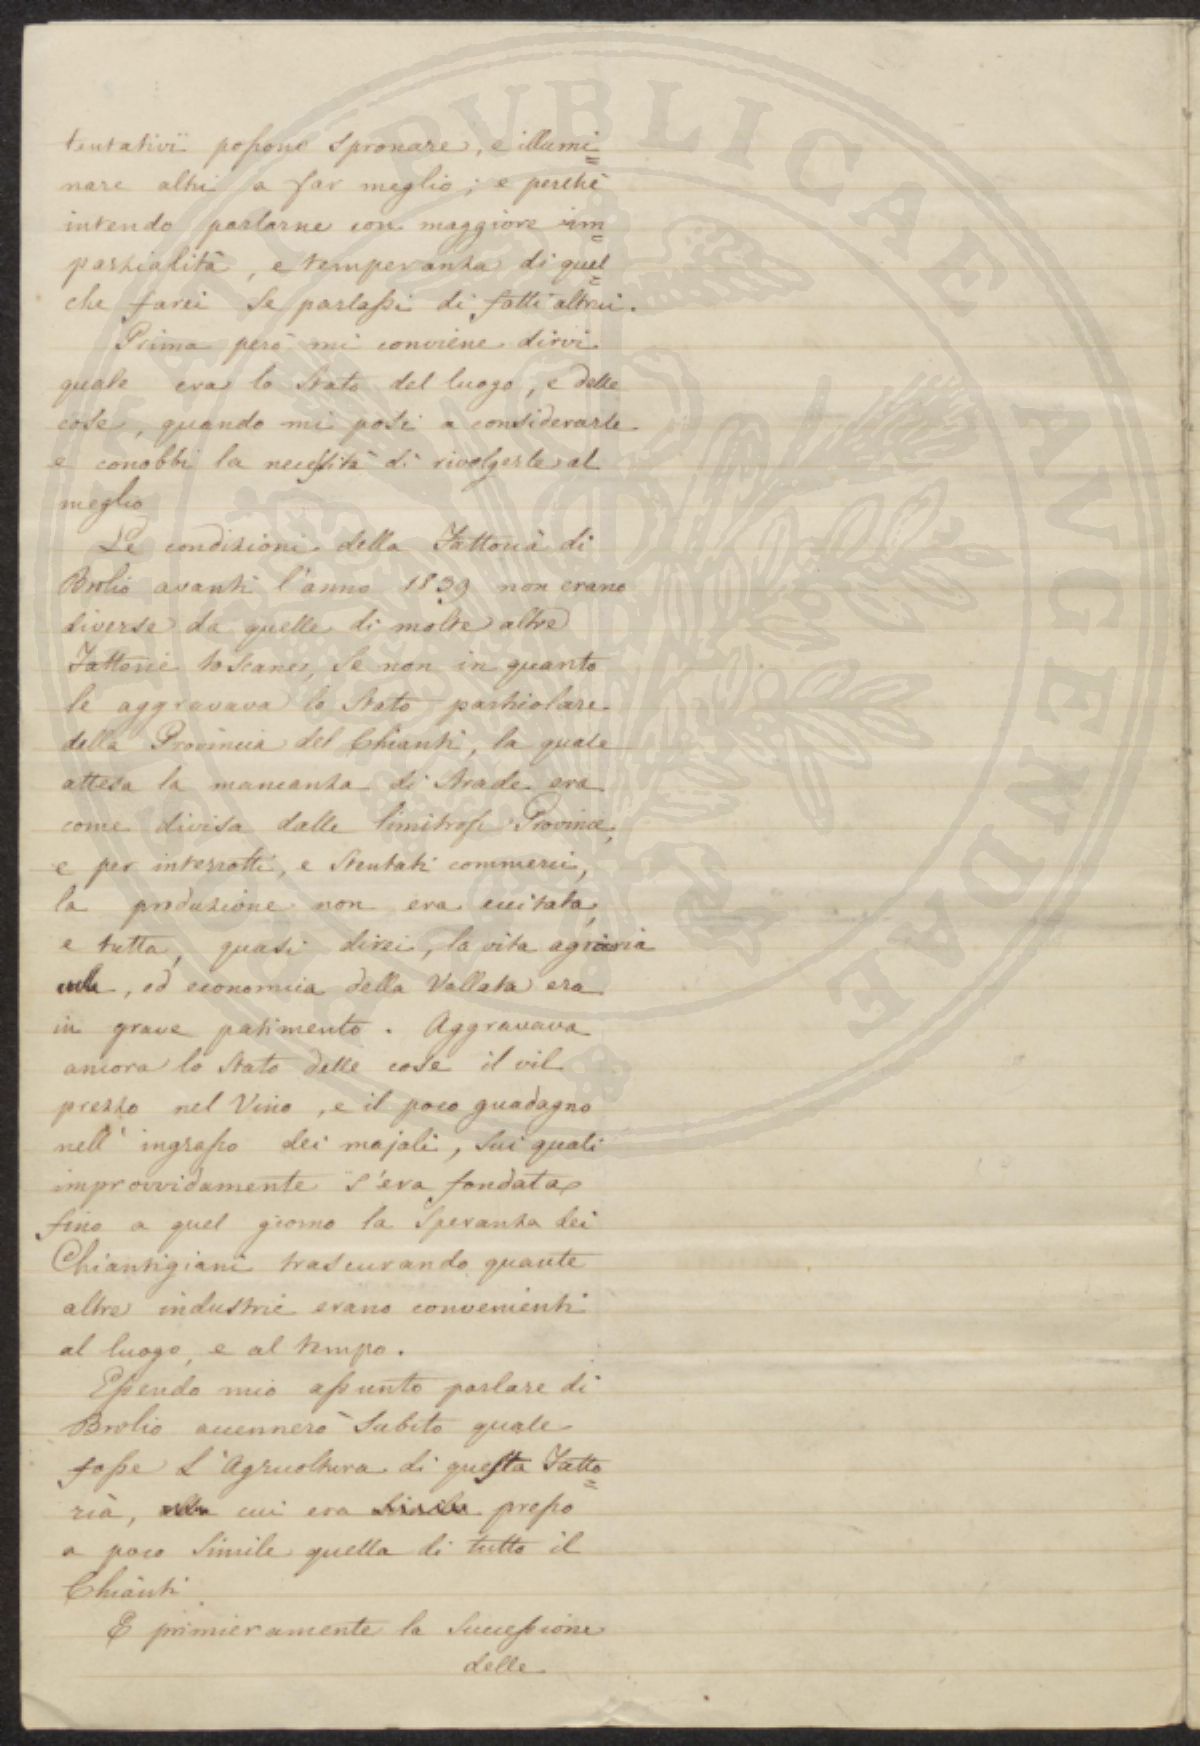 tentativi possono spronare, e illumi=
nare altri a far meglio; e perchè
intendo parlarne con maggiore im=
parzialità, e temperanza di quel=
che farei se parlassi di fatti altrui.
Prima però mi conviene dirvi
quale era lo stato del luogo, e delle
cose, quando mi posi a considerarle
e conobbi la necessità di rivolgerle al
meglio
Le condizioni della Fattoria di
Brolio avanti l'anno 1839 non erano
diverse da quelle di molte altre
Fattorie toscane, se non in quanto
le aggravava lo stato particolare
della Provincia del Chianti, la quale
attesa la mancanza di strade era
come divisa dalle limitrofe Province,
e per interrotti, e stentati commerci,
la produzione non era eccitata,
e tutta, quasi direi, la vita agraria
, ed economica della Vallata era
in grave patimento. Aggravava
ancora lo stato delle cose il vil
prezzo nel Vino, e il poco guadagno
nell'ingrasso dei majali, sui quali
improvvidamente s'era fondata
fino a quel giorno la speranza dei
Chiantigiani trascurando quante
altre industrie erano convenienti
al luogo, e al tempo.
Essendo mio assunto parlare di
Brolio accennerò subito quale
fosse l'Agricoltura di questa Fatto=
ria, cui era presso
a poco simile quella di tutto il
Chianti
E primieramente la successione
delle
PVBLICAE AVGENDAE